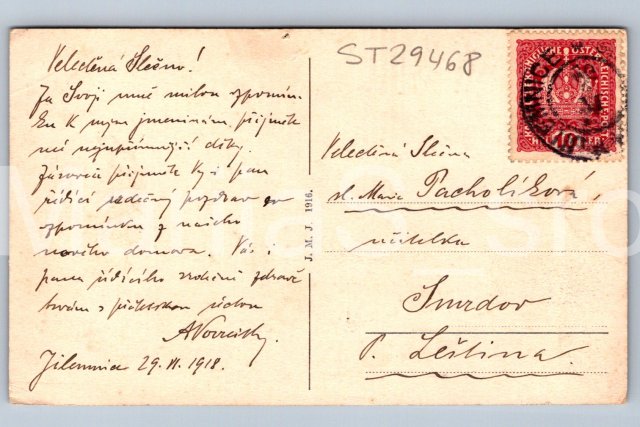 Velectěná Slečno!
Za Svoji mně milou vzpomín-
ku k mým jmeninám, přijměte
mé nejupřímnější díky.
Zároveň přijměte Vy i pan
řídící srdečný pozdrav
vzpomínku z našeho
nového domova. Vás i
pana řídícího srdečně zdraví
Jilemnice 29. VI. 1918.
ST29468
Velectěná Slečna
sl. Marie Pacholíková,
učitelka
Smrdov
p. Leština.
J. M. J. 1916.